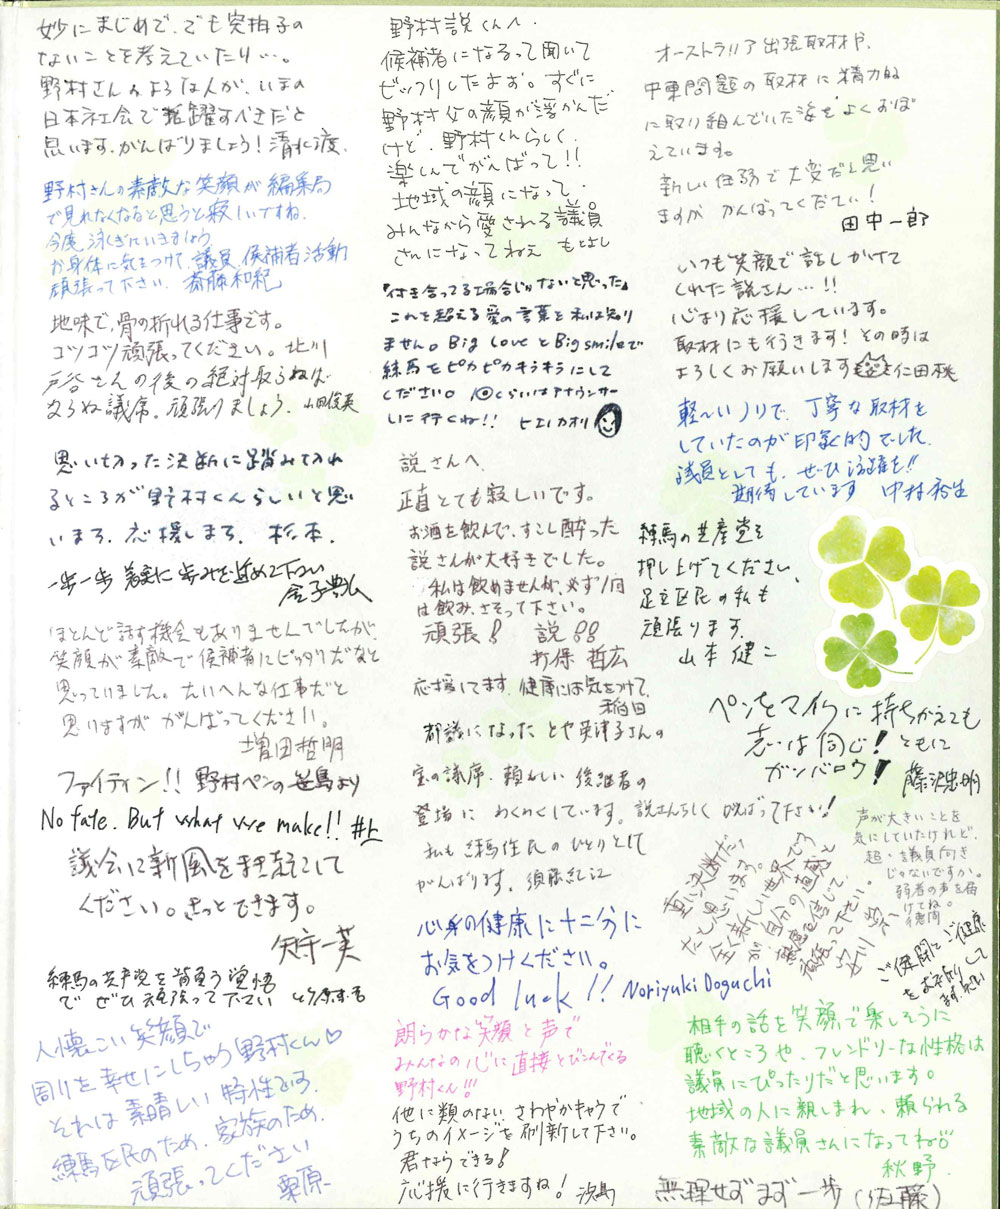 妙にまじめで、でも突拍子の
ないことを考えていたり…。
野村さんのような人が、いまの
日本社会で活躍すべきだと
思います。がんばりましょう！清水渡
野村さんの素敵な笑顔が編集局
で見れなくなると思うと寂しいですね。
今度泳ぎにいきましょう
お身体に気をつけて議員候補者活動
頑張って下さい。斎藤和紀
地味で、骨の折れる仕事です。
コツコツ頑張ってください。北川
戸谷さんの後の絶対取らねば
ならぬ議席。頑張りましょう。山田俊英
思い切った決断に踏み切れ
るところが野村くんらしいと思
います。応援します。杉本
一歩一歩着実に歩みを進めて下さい
金子
ほとんど話す機会もありませんでしたが、
笑顔が素敵で候補者にピッタリだなと
思っていました。たいへんな仕事だと
思いますががんばってください。
増田哲明
ファイティン！！野村ペンの笹島より
No fate. But what we make!! 井上
議会に新風をまき起こして
ください。きっとできます。
矢守一英
練馬の共産党を背負う覚悟
でぜひ頑張って下さい
人懐こい笑顔で
周りを幸せにしちゃう野村くん♡
それは素晴しい特性です。
練馬区民のため、家族のため、
頑張ってください
栗原
野村説くんへ
候補者になるって聞いて
ビックリしたよお。すぐに
野村父の顔が浮かんだ
けど、野村くんらしく、
楽しんでがんばって！！
地域の顔になって、
みんなから愛される議員
さんになってねぇ もとよし
「付き合ってる場合じゃないと思った」
これを超える愛の言葉を私は知り
ません。Big loveとBig smileで
練馬をピカピカキラキラにして
ください。10回くらいはアナウンサー
しに行くね！！ ヒエカオリ
説さんへ
正直とても寂しいです。
お酒を飲んで、すこし酔った
説さんが大好きでした。
私は飲めませんが、必ず1回
は飲み、さそって下さい。
頑張！ 説！！
打保哲広
応援してます。健康には気をつけて。
稲田
都議になったとや英津子さんの
宝の議席、頼もしい後継者の
登場にわくわくしています。説さんらしくがんばって下さい！
私も練馬住民のひとりとして
がんばります。須藤紀江
心身の健康に十二分に
お気をつけください。
Good luck!! Noriyuki Doguchi
朗らかな笑顔と声で
みんなの心に直接とびこんでくる
野村くん!!!
他に類のない、さわやかキャラで
うちのイメージを刷新して下さい。
君ならできる！
応援に行きますね！ 浜島
オーストラリア出張取材や、
中東問題の取材に精力的
に取り組んでいた姿をよくおぼ
えています。
新しい任務で大変だと思い
ますが がんばってください！
田中一郎
いつも笑顔で話しかけて
くれた説さん…!!
心より応援しています。
取材にも行きます！その時は
よろしくお願いします 仁田桃
軽〜いノリで、丁寧な取材を
していたのが印象的でした。
議員としても、ぜひ活躍を!!
期待しています 中村裕生
練馬の共産党を
押し上げてください。
足立区民の私も
頑張ります。
山本健二
ペンをマイクに持ちかえても
志は同じ！ともに
ガンバロウ！ 藤沢忠明
声が大きいことを
気にしていたけれど、
超・議員向き
じゃないですか。
弱者の声を届
けてね。
重い決断だっ
たと思います。
全く新しい世界でも
自分の直感と
感性を信じて、
頑張って下さい。
ご健闘とご健康
をお祈りして
ます。
相手の話を笑顔で楽しそうに
聴くところや、フレンドリーな性格は
議員にぴったりだと思います。
地域の人に親しまれ、頼られる
素敵な議員さんになってね
秋野
無理せずまず一歩（佐藤）